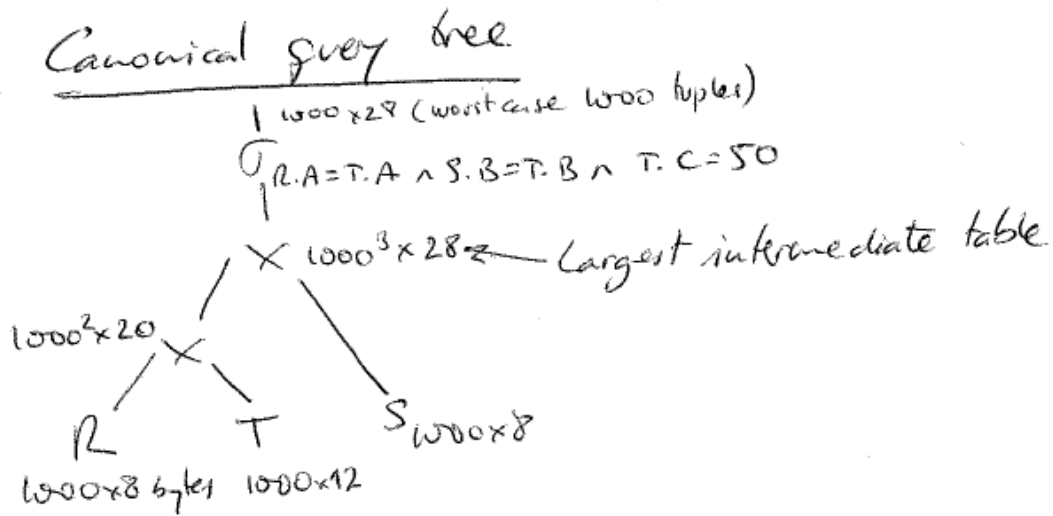 Canonical query tree
1000×28 (worst case 1000 tuples)
σ R.A=T.A ∧ S.B=T.B ∧ T.C=50
× 1000³×28 ← Largest intermediate table
1000²×20 ×
R T S 1000×8
1000×8 bytes 1000×12